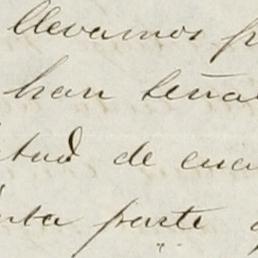 llevamos p
han seña
itud de cua
nta parte